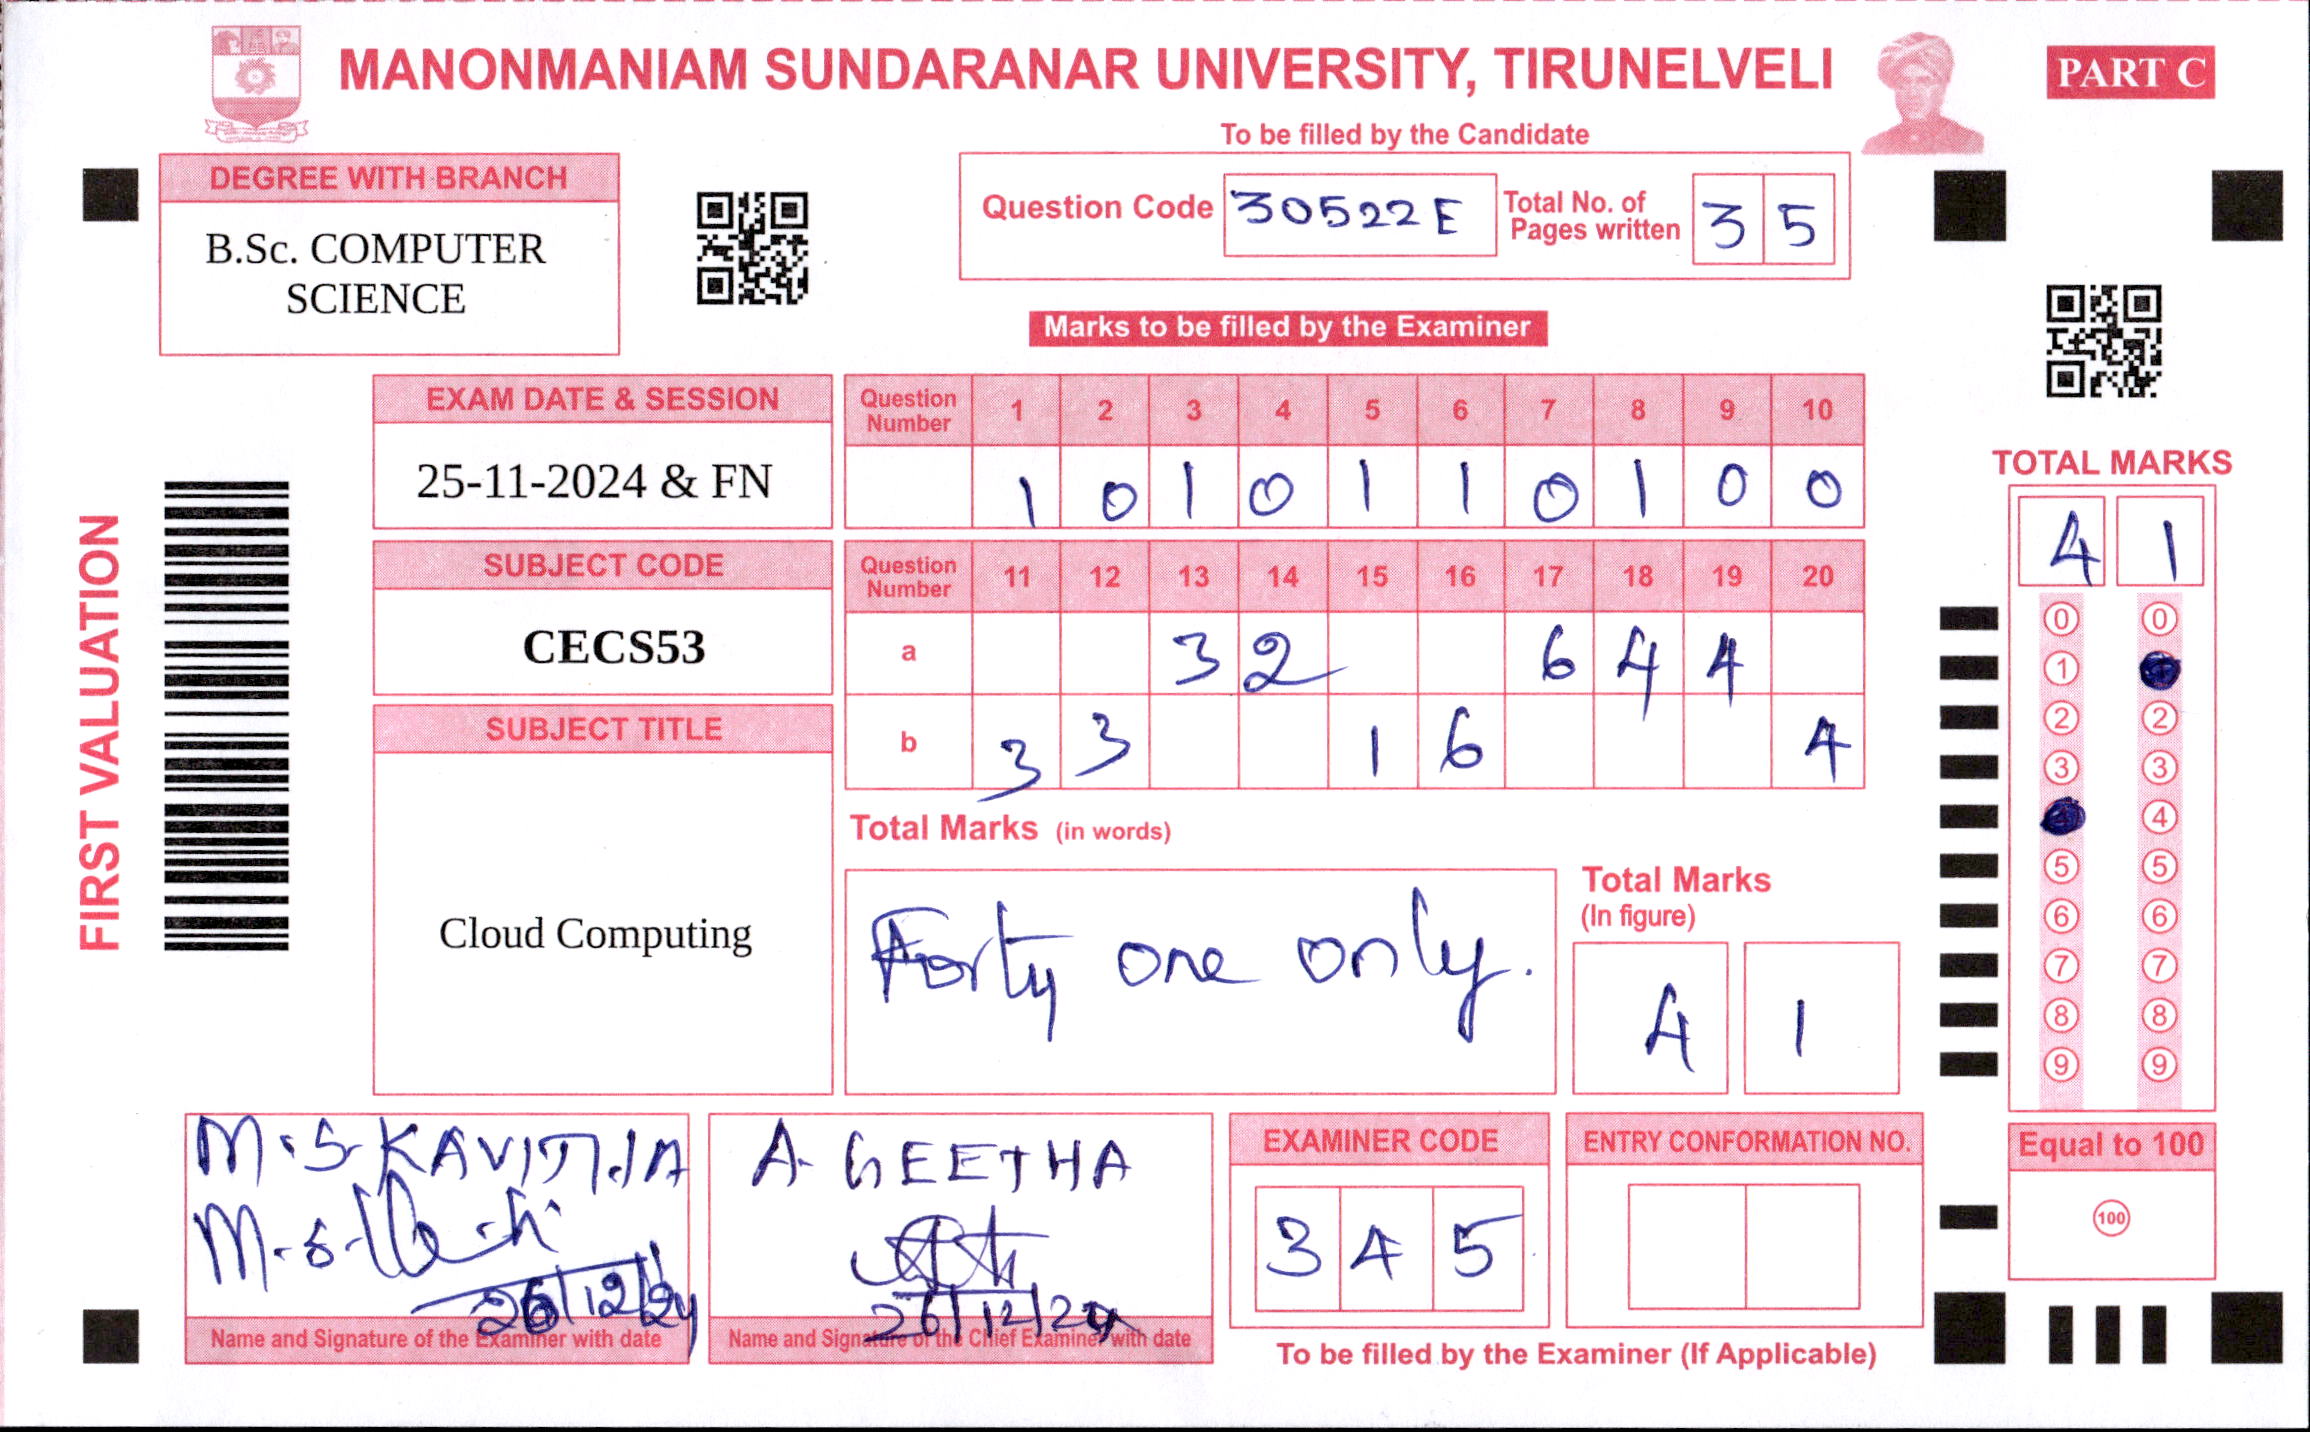 MANONMANIAM SUNDARANAR UNIVERSITY, TIRUNELVELI
PART C
To be filled by the Candidate
DEGREE WITH BRANCH
B.Sc. COMPUTER
SCIENCE
Question Code 30522E Total No. of Pages written 3 5
Marks to be filled by the Examiner
FIRST VALUATION
EXAM DATE & SESSION
25-11-2024 & FN
SUBJECT CODE
CECS53
SUBJECT TITLE
Cloud Computing
Question Number 1 2 3 4 5 6 7 8 9 10
1 0 1 0 1 1 0 1 0 0
Question Number 11 12 13 14 15 16 17 18 19 20
a 3 2 6 4 4
b 3 3 1 6 4
Total Marks (in words)
Forty one only.
Total Marks
(In figure)
4 1
TOTAL MARKS
4 1
0 0
1
2 2
3 3
4
5 5
6 6
7 7
8 8
9 9
Equal to 100
100
M.S. KAVITHA
26/12/24
Name and Signature of the Examiner with date
A. GEETHA
26/12/24
Name and Signature of the Chief Examiner with date
EXAMINER CODE
3 4 5
ENTRY CONFORMATION NO.
To be filled by the Examiner (If Applicable)